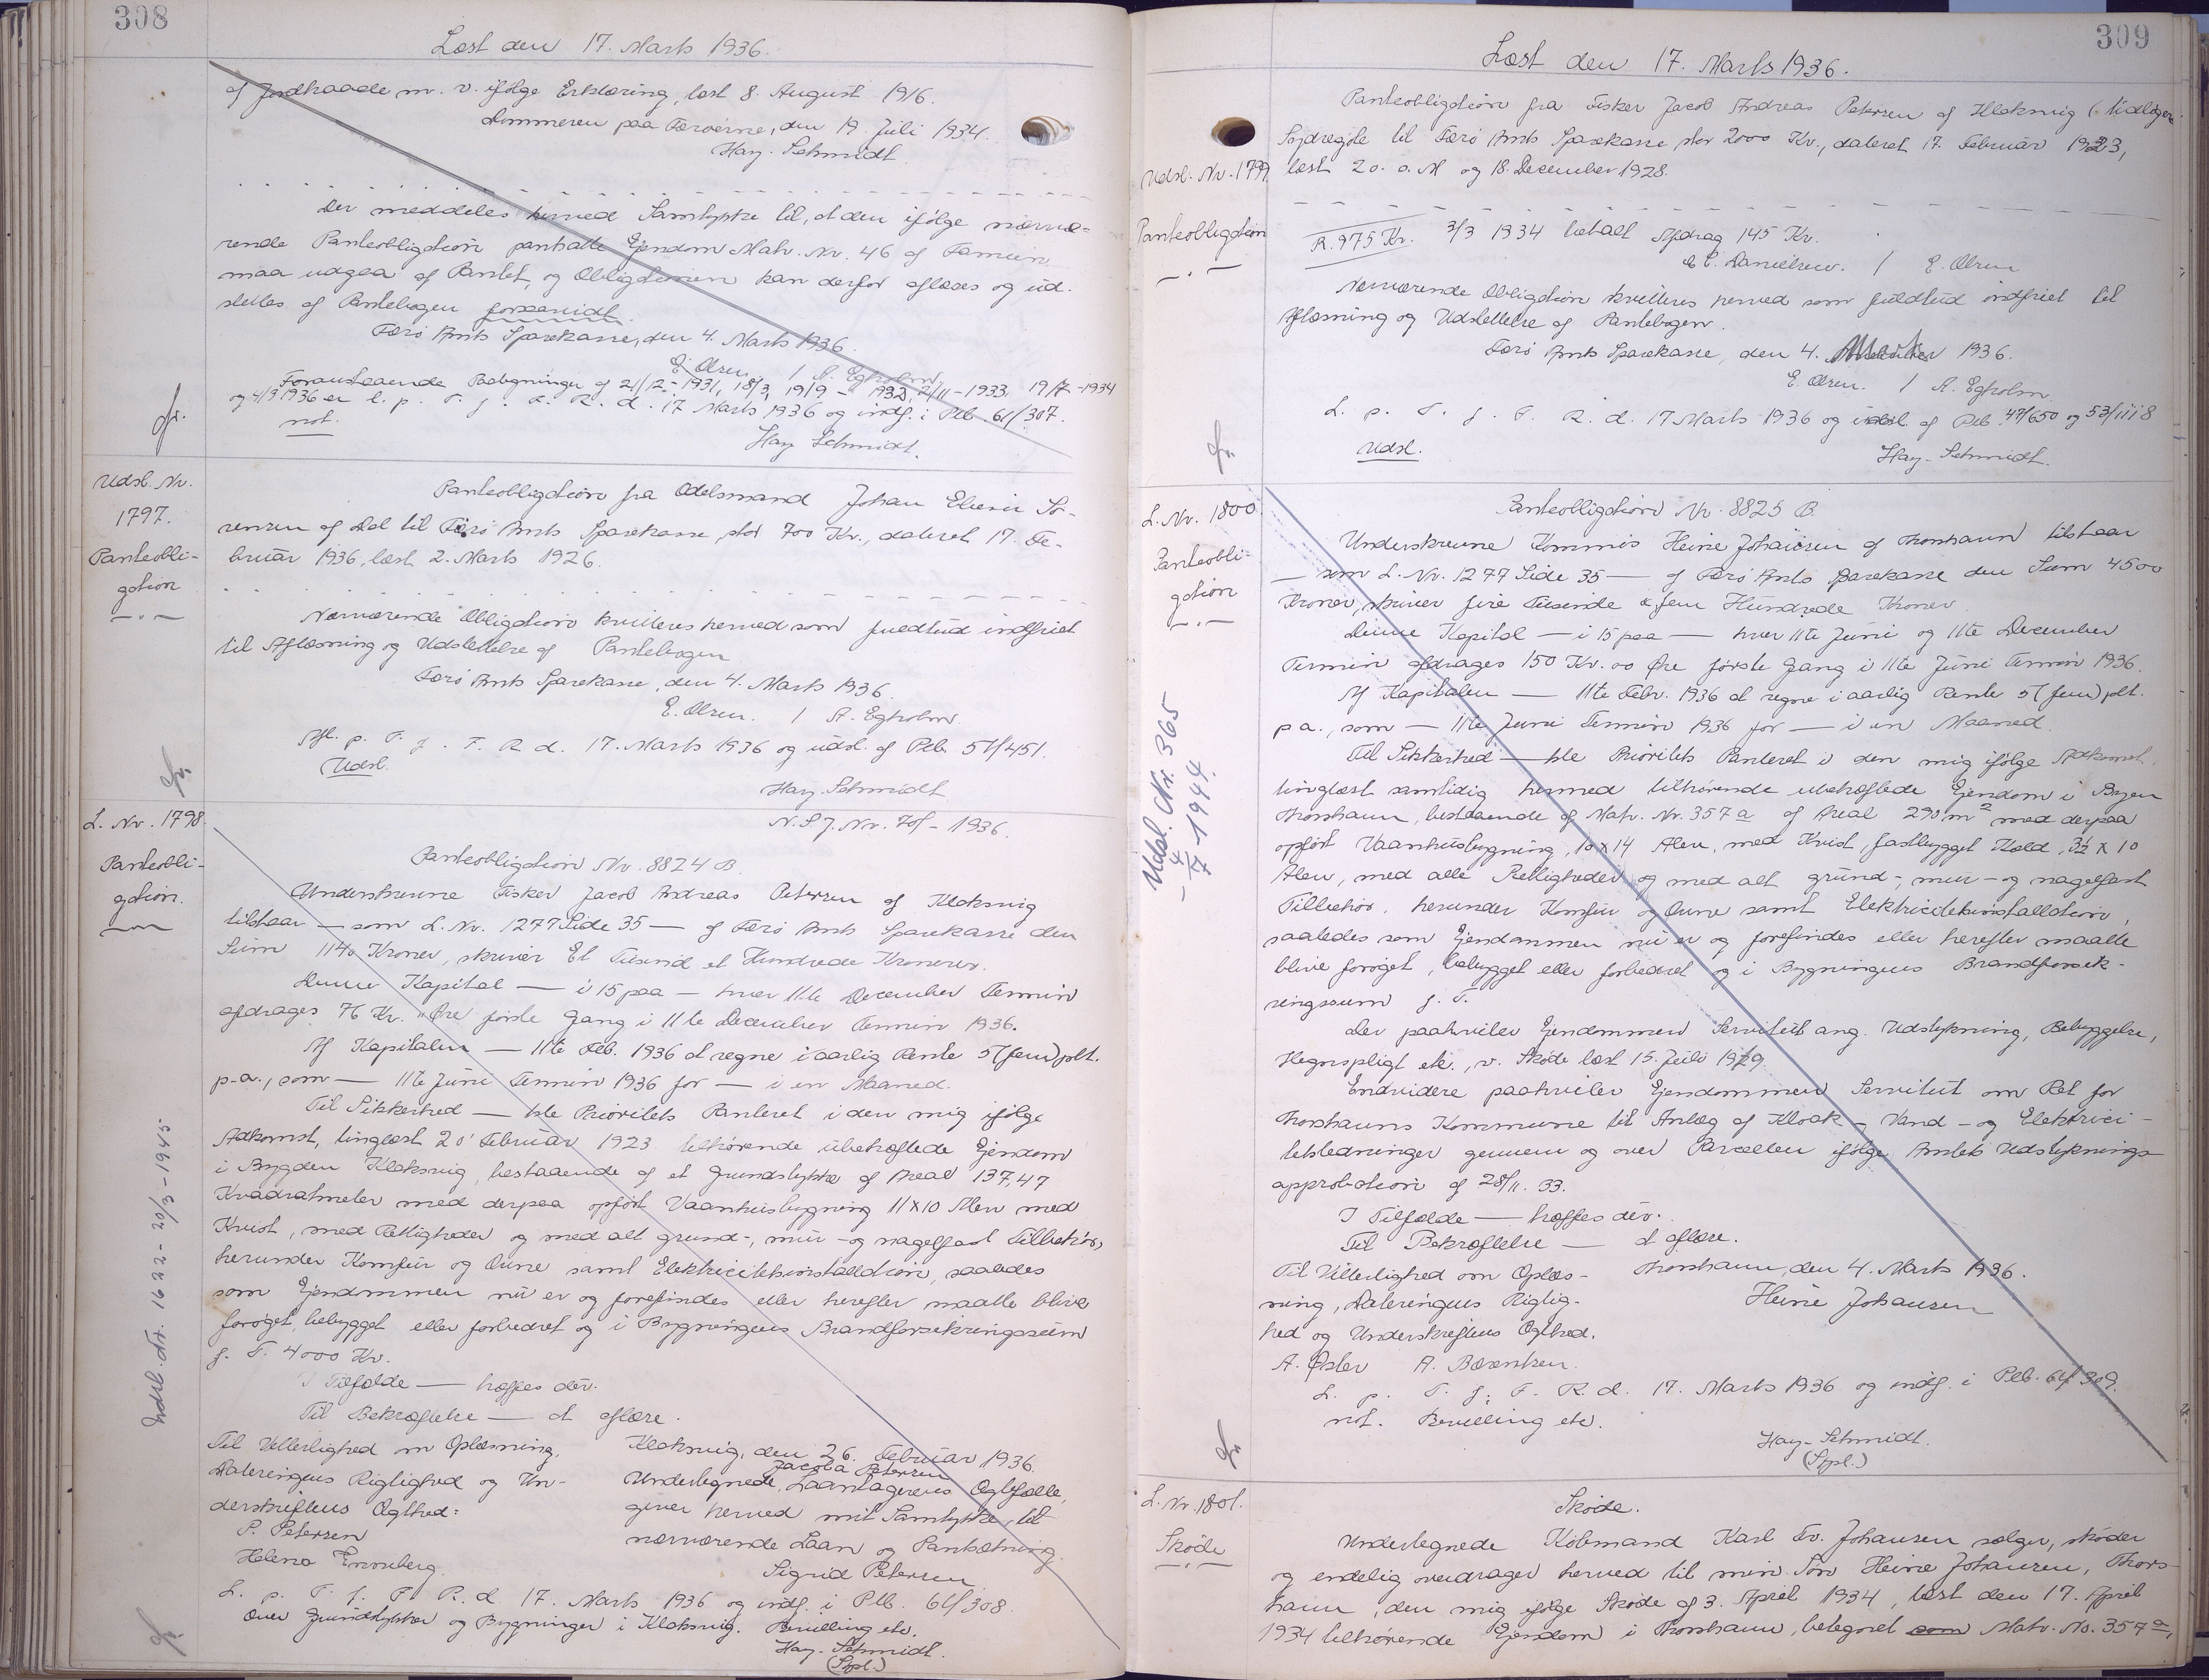 308
Læst den 17. Marts 1936.
af Jordkaade m. v. ifølge Erklæring, læst 8. August 1916.
Dommeren paa Færøerne, den 19. Juli 1934.
Hay-Schmidt.
Der meddeles herved Samtykke til, at den ifølge nærvæ-
rende Panteobligation pantsatte Ejendom Matr. Nr. 46 af Famien
maa udgaa af Pantet, og Obligationen kan derfor aflæses og ud-
slettes af Pantebogen forsaavidt.
Færø Amts Sparekasse, den 4. Marts 1936.
E. Olsen / A. Egholm
Foranstaaende Paategninger af 21/12-1931, 18/3, 19/9 - 1932, 2/11-1933, 19/7-1934
og 4/3 1936 er l. p. T. f. F. R. d. 17 Marts 1936 og indf. i Ptb. 61/307.
not.
Hay Schmidt.
Udsl. Nr.
1797.
Panteobli-
gation
Panteobligation fra Odelsmand Johan Elieser Sø-
rensen af Dal til Færø Amts Sparekasse, stor 700 Kr., dateret 17. Fe-
bruar 1936, læst 2. Marts 1926.
Nærværende Obligation kvitteres herved som fuldtud indfriet
til Aflæsning og Udslettelse af Pantebogen
Færø Amts Sparekasse, den 4. Marts 1936.
E. Olsen. / A. Egholm.
Afl. p. T. f. F. R. d. 17. Marts 1936 og udsl. af Ptb. 51/451.
Udsl.
Hay-Schmidt
L. Nr. 1798.
Panteobli-
gation.
N.S.J. Nr. 70/-1936.
Panteobligation Nr. 8824 B
Underskrevne Fisker Jacob Andreas Petersen af Klaksvig
tilstaar — som L. Nr. 1277 Side 35 — af Færø Amts Sparekasse den
Sum 1140 Kroner, skriver Et Tusind et Hundrede Kronerer.
Denne Kapital — i 15 paa — hver 11te December Termin
afdrages 76 Kr. " Øre første Gang i 11te December Termin 1936.
Af Kapitalen — 11te Feb. 1936 at regne i aarlig Rente 5 (fem) pCt.
p.a., som — 11te Juni Termin 1936 for — i en Maaned.
Til Sikkerhed — 1ste Prioritets Panteret i den mig ifølge
Adkomst, tinglæst 20' Februar 1923 tilhørende ubehæftede Ejendom
i Bygden Klaksvig, bestaaende af et Grundstykke af Areal 137,47
Kvadratmeter med derpaa opført Vaaningsbygning 11x10 Alen med
Kvist, med Rettigheder og med alt grund-, mur- og nagelfast Tilbehør,
herunder Komfur og Ovne samt Elektricitetsinstallation, saaledes
som Ejendommen nu er og forefindes eller herefter maatte blive
forøget, bebygget eller forbedret og i Bygningens Brandforsikringssum
f. T. 4000 Kr.
I Tilfælde — hæftes der.
Til Bekræftelse — at aflæse.
Til Vitterlighed om Oplæsning,
Dateringens Rigtighed og Un-
derskriftens Ægthed:
P. Petersen
Klaksvig, den 26. Februar 1936.
Jacob A Petersen
Undertegnede, Laantagerens Ægtefælle,
giver herved mit Samtykke til
nærværende Laan og Pantsætning.
Sigrid Petersen
L. p. T. f. F. R. d. 17. Marts 1936 og indf. i Ptb. 61/308.
over Grundstykker og Bygninger i Klaksvig. Bevilling etc.
Hay-Schmidt.
(Stpl.)
Udsl. Nr. 1622 - 20/3-1945
309
Læst den 17. Marts 1936.
Udsl. Nr. 1799.
Panteobligation
Panteobligation fra Fisker Jacob Andreas Petersen af Klaksvig (tidligere
Sydregøte til Færø Amts Sparekasse stor 2000 Kr., dateret 17. Februar 1923,
læst 20. s. M og 18. December 1928.
R. 975 Kr. 3/3 1934 betalt Afdrag 145 Kr.
C. Danielsen. / E. Olsen
Nærværende Obligation kvitteres herved som fuldtud indfriet til
Aflæsning og Udslettelse af Pantebogen.
Færø Amts Sparekasse, den 4. Marts 1936.
E. Olsen. / A. Egholm
L. p. T. f. F. R. d. 17 Marts 1936 og udsl. af Ptb. 47/650 og 53/1118
Udsl.
Hay-Schmidt.
L. Nr. 1800.
Panteobli-
gation
Panteobligation Nr. 8825 B.
Underskrevne Kommis Heine Johansen af Thorshavn tilstaar
— som L. Nr. 1277 Side 35 — af Færø Amts Sparekasse den Sum 4500
Kroner, skriver fire Tusinde & fem Hundrede Kroner
Denne Kapital — i 15 paa — hver 11te Juni og 11te December
Termin afdrages 150 Kr. 00 Øre første Gang i 11te Juni Termin 1936.
Af Kapitalen — 11te Febr. 1936 at regne i aarlig Rente 5 (fem) pCt.
p a., som — 11te Juni Termin 1936 for — i en Maaned.
Til Sikkerhed — 1ste Prioritets Panteret i den mig ifølge Adkomst,
tinglæst samtidig hermed tilhørende ubehæftede Ejendom i Byen
Thorshavn, bestaaende af Matr. Nr. 357a af Areal 290 m² med derpaa
opført Vaanhusbygning, 10x14 Alen, med Kvist, fastbygget Hold, 3½ x 10
Alen, med alle Rettigheder og med alt grund-, mur- og nagelfast
Tilbehør, herunder Komfur og Ovne samt Elektricitetsinstallation,
saaledes som Ejendommen nu er og forefindes eller herefter maatte
blive forøget, bebygget eller forbedret og i Bygningens Brandforsik-
ringssum f. T.
Der paahviler Ejendommen Servitut ang. Udstykning, Bebyggelse,
Hegnspligt etc., v. Skøde læst 15. Juli 1929.
Endvidere paahviler Ejendommen Servitut om Ret for
Thorshavns Kommune til Anlæg af Kloak- Vand- og Elektrici-
tetsledninger gennem og over Parcellen ifølge Amtets Udstyknings-
approbation af 28/11. 33.
I Tilfælde — hæftes der.
Til Bekræftelse — at aflæse.
Til Vitterlighed om Oplæs-
ning, Dateringens Rigtig-
hed og Underskriftens Ægthed.
Thorshavn, den 4. Marts 1936.
Heine Johansen
A. Øster A. Bærentsen.
L. p. T. f. F. R. d. 17. Marts 1936 og indf. i Ptb. 61/309.
not. Bevilling etc.
Hay-Schmidt.
(Stpl.)
Udsl. Nr. 365
- 4/7 1944.
L. Nr. 1801.
Skøde
Skøde.
Undertegnede Købmand Karl Fr. Johansen sælger, skøder
og endelig overdrager herved til min Søn Heine Johansen, Thors-
havn, den mig ifølge Skøde af 3. April 1934, læst den 17. April
1934 tilhørende Ejendom i Thorshavn, betegnet som Matr. No. 357a,